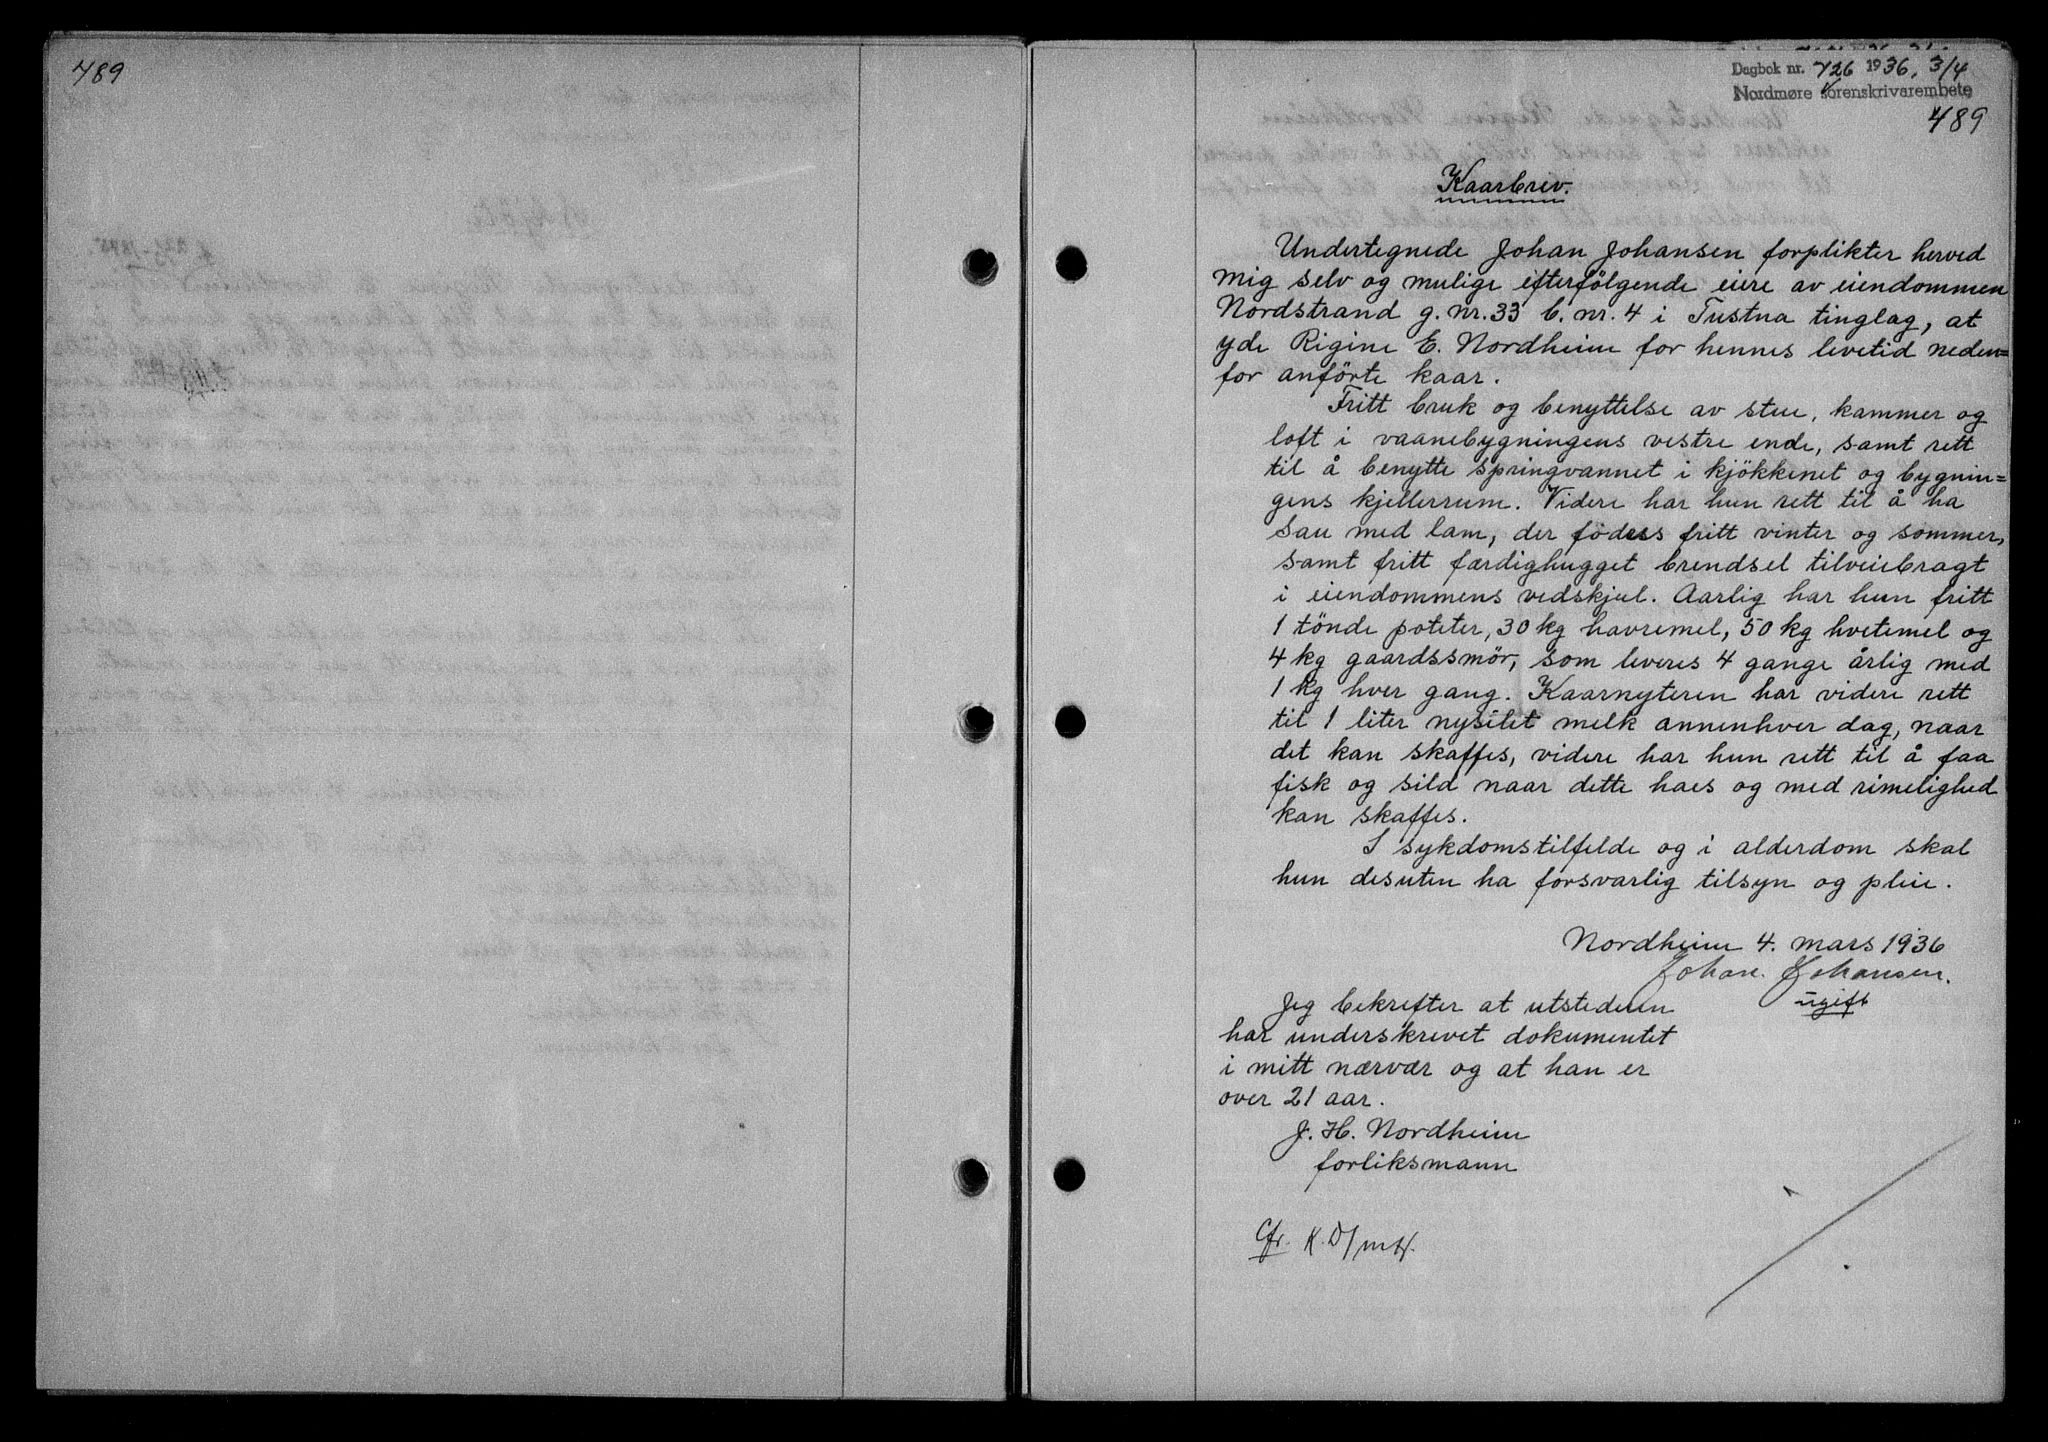 489
Dagbok nr. 726 1936, 3/4
Nordmøre sorenskrivarembete
489
Kaarbrev.
Undertegnede Johan Johansen forplikter herved
mig selv og mulige efterfölgende eiere av eiendommen
Nordstrand g. nr. 33 b. nr. 4 i Tustna tinglag, at
yde Rigine E. Nordheim for hennes levetid neden=
for anförte kaar.
Fritt bruk og benyttelse av stue, kammer og
loft i vaanebygningens vestre ende, samt rett
til å benytte springvannet i kjökkenet og bygnin=
gens kjellerrum. Videre har hun rett til å ha
sau med lam, der födes fritt vinter og sommer,
samt fritt færdighugget brendsel tilveiebragt
i eiendommens vedskjul. Aarlig har hun fritt
1 tönde poteter, 30 kg havremel, 50 kg hvetemel og
4 kg gaardssmör, som leveres 4 gange årlig med
1 kg hver gang. Kaarnyteren har videre rett
til 1 liter nysilet melk annenhver dag, naar
det kan skaffes, videre har hun rett til å faa
fisk og sild naar dette haes og med rimelighed
kan skaffes.
I sykdomstilfelde og i alderdom skal
hun desuten ha forsvarlig tilsyn og pleie.
Nordheim 4. mars 1936
Johan. Johansen.
ugift
Jeg bekrefter at utstederen
har underskrevet dokumentet
i mitt nærvær og at han er
over 21 aar.
J. H. Nordheim
forliksmann
Cfr. K.D/